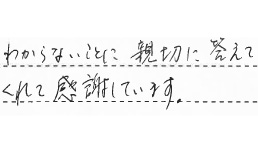 わからないことに 親切に 答えて
くれて 感謝しています。